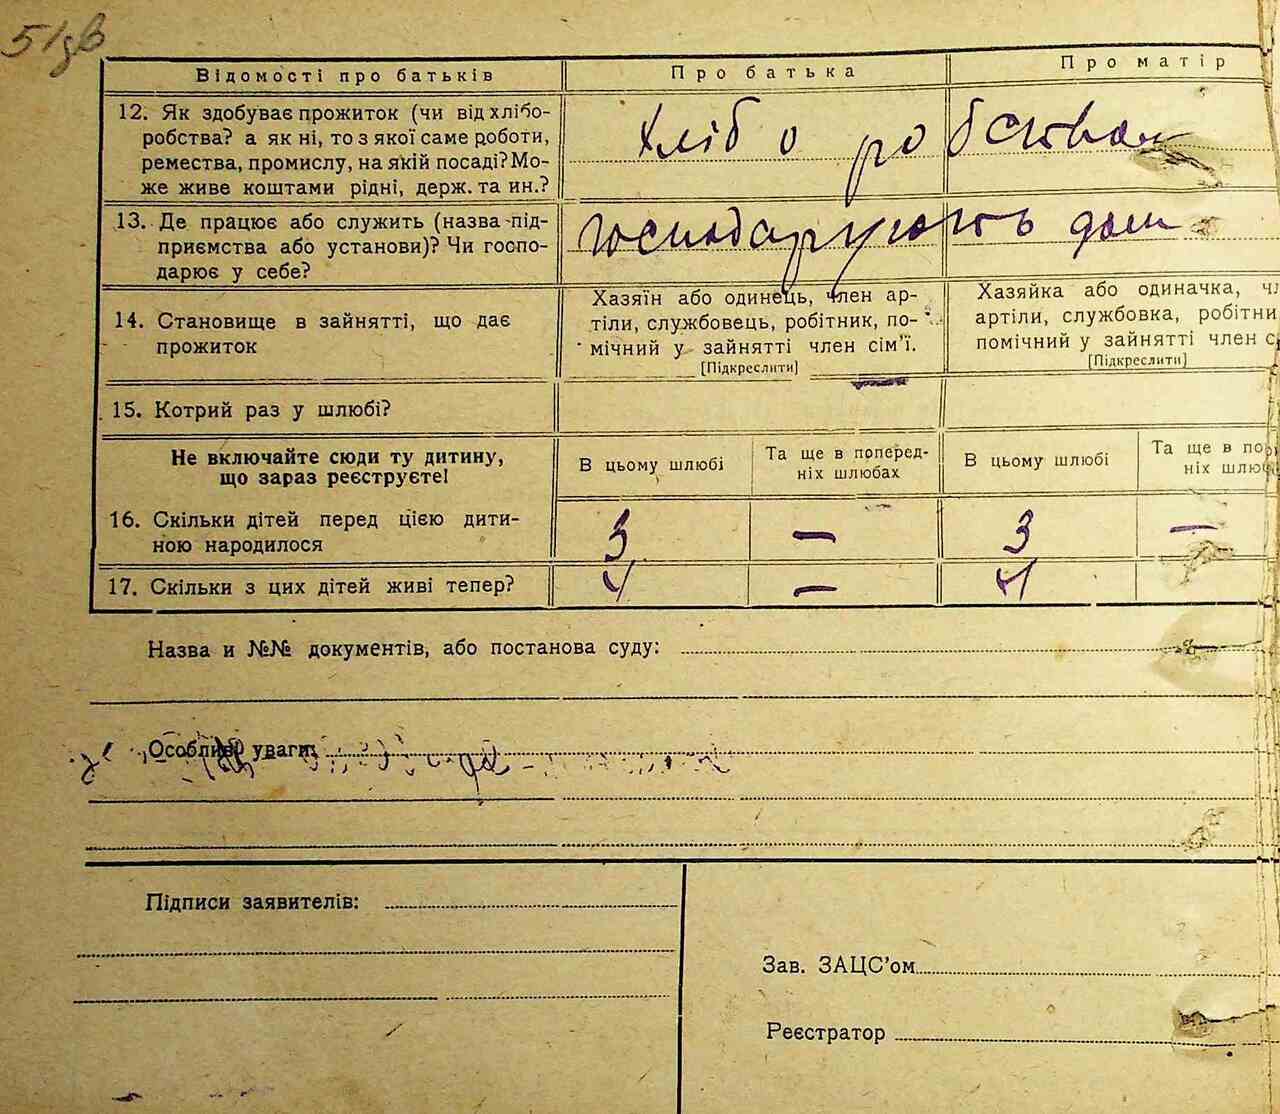 51зв
Відомості про батьків Про батька Про матір
12. Як здобуває прожиток (чи від хлібо-
робства? а як ні, то з якої саме роботи,
ремества, промислу, на якій посаді? Мо-
же живе коштами рідні, держ. та ин.?
Хліборобством
13. Де працює або служить (назва під-
приємства або установи)? Чи госпо-
дарює у себе?
господарують дом
14. Становище в зайнятті, що дає
прожиток
Хазяїн або одинець, член ар-
тіли, службовець, робітник, по-
мічний у зайнятті член сім'ї.
[Підкреслити]
Хазяйка або одиначка, чл
артіли, службовка, робітни
помічний у зайнятті член с
[Підкреслити]
15. Котрий раз у шлюбі?
Не включайте сюди ту дитину,
що зараз реєструєте!
В цьому шлюбі
Та ще в поперед-
ніх шлюбах
В цьому шлюбі
Та ще в попе
ніх шлюб
16. Скільки дітей перед цією дити-
ною народилося
3 — 3 —
17. Скільки з цих дітей живі тепер?
4 — 4
Назва и №№ документів, або постанова суду:
Особливі уваги:
Підписи заявителів:
Зав. ЗАЦС'ом
Реєстратор